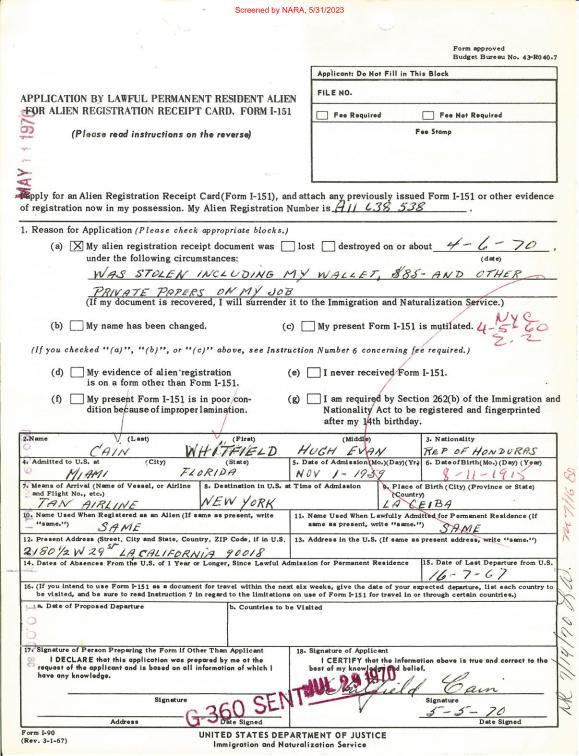 Screened by NARA, 5/31/2023
Form approved
Budget Bureau No. 43-R040.7
Applicant: Do Not Fill in This Block
FILE NO.
Fee Required Fee Not Required
Fee Stamp
APPLICATION BY LAWFUL PERMANENT RESIDENT ALIEN
FOR ALIEN REGISTRATION RECEIPT CARD, FORM I-151
(Please read instructions on the reverse)
MAY 11 1970
I apply for an Alien Registration Receipt Card (Form I-151), and attach any previously issued Form I-151 or other evidence
of registration now in my possession. My Alien Registration Number is A11 638 538.
1. Reason for Application (Please check appropriate blocks.)
(a) X My alien registration receipt document was lost destroyed on or about 4-6-70,
under the following circumstances: (date)
WAS STOLEN INCLUDING MY WALLET, $85- AND OTHER
PRIVATE PAPERS ON MY JOB
(If my document is recovered, I will surrender it to the Immigration and Naturalization Service.)
(b) My name has been changed. (c) My present Form I-151 is mutilated.
NYC
4-5-60
2.2
(If you checked "(a)", "(b)", or "(c)" above, see Instruction Number 6 concerning fee required.)
(d) My evidence of alien registration
is on a form other than Form I-151.
(e) I never received Form I-151.
(f) My present Form I-151 is in poor con-
dition because of improper lamination.
(g) I am required by Section 262(b) of the Immigration and
Nationality Act to be registered and fingerprinted
after my 14th birthday.
2. Name (Last) (First) (Middle) 3. Nationality
CAIN WHITFIELD HUGH EVAN REP OF HONDURAS
4. Admitted to U.S. at (City) (State) 5. Date of Admission (Mo.) (Day) (Yr.) 6. Date of Birth (Mo.) (Day) (Year)
MIAMI FLORIDA NOV 1-1959 8-11-1915
7. Means of Arrival (Name of Vessel, or Airline
and Flight No., etc.)
TAN AIRLINE
8. Destination in U.S. at Time of Admission
NEW YORK
9. Place of Birth (City) (Province or State)
(Country)
LA CEIBA
10. Name Used When Registered as an Alien (If same as present, write
"same.")
SAME
11. Name Used When Lawfully Admitted for Permanent Residence (If
same as present, write "same.")
SAME
12. Present Address (Street, City and State, Country, ZIP Code, if in U.S.
2180 1/2 W 29 ST LA CALIFORNIA 90018
13. Address in the U.S. (If same as present address, write "same.")
14. Dates of Absences From the U.S. of 1 Year or Longer, Since Lawful Admission for Permanent Residence
15. Date of Last Departure from U.S.
16-7-67
16. (If you intend to use Form I-151 as a document for travel within the next six weeks, give the date of your expected departure, list each country to
be visited, and be sure to read Instruction 7 in regard to the limitations on use of Form I-151 for travel in or through certain countries.)
a. Date of Proposed Departure b. Countries to be Visited
17. Signature of Person Preparing the Form if Other Than Applicant
I DECLARE that this application was prepared by me at the
request of the applicant and is based on all information of which I
have any knowledge.
Signature
Address Date Signed
18. Signature of Applicant
I CERTIFY that the information above is true and correct to the
best of my knowledge and belief.
Whitfield Cain
Signature
5-5-70
Date Signed
G-360 SENT JUL 29 1970
NR 7/14/70
Form I-90
(Rev. 3-1-67)
UNITED STATES DEPARTMENT OF JUSTICE
Immigration and Naturalization Service